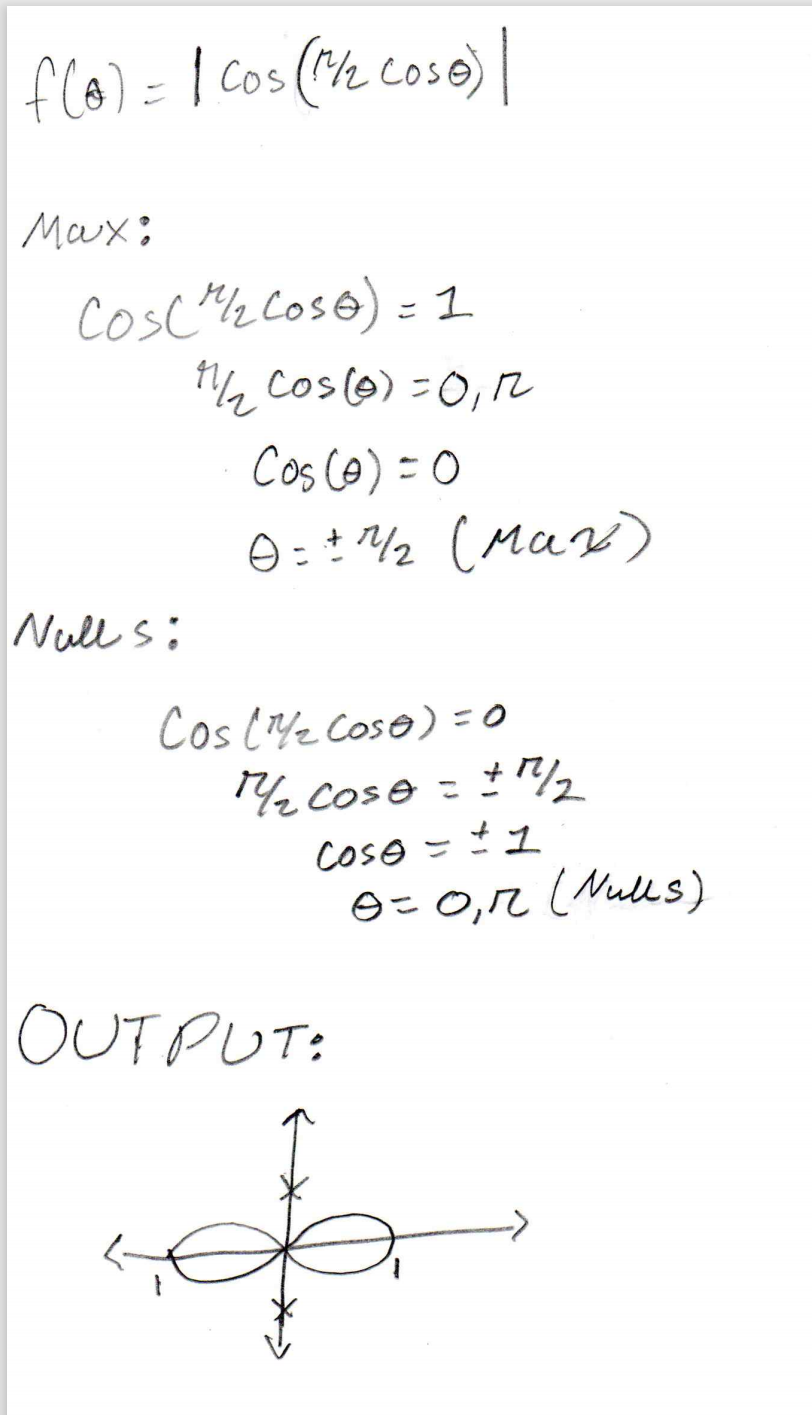 f(θ) = | Cos(π/2 cosθ) |
Max:
Cos(π/2 Cosθ) = 1
π/2 Cos(θ) = 0, π
Cos(θ) = 0
θ = ± π/2 (Max)
Nulls:
Cos(π/2 Cosθ) = 0
π/2 Cosθ = ± π/2
Cosθ = ± 1
θ = 0, π (Nulls)
OUTPUT:
1 1